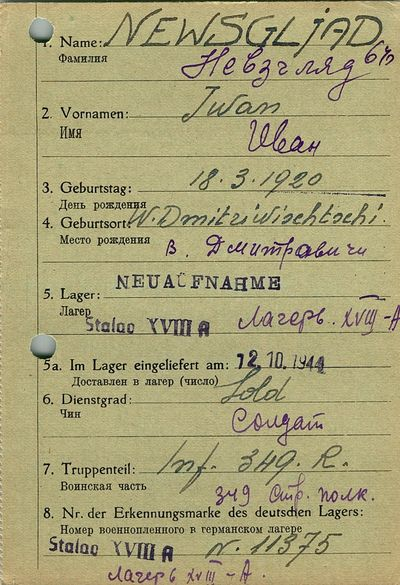 1. Name: NEWSGLJAD
Фамилия Невзгляд
2. Vornamen: Iwan
Имя Иван
3. Geburtstag: 18.3.1920
День рождения
4. Geburtsort: W. Dmitriwischtschi.
Место рождения В. Дмитравичи
NEUAUFNAHME
5. Lager:
Лагерь
Stalag XVIII A Лагерь XVIII-А
5a. Im Lager eingeliefert am: 12.10.1944
Доставлен в лагерь (число)
6. Dienstgrad: Sold
Чин Солдат
7. Truppenteil: Inf. 349. R.
Воинская часть 349 Стр. полк.
8. Nr. der Erkennungsmarke des deutschen Lagers:
Номер военнопленного в германском лагере
Stalag XVIII A N. 11375
Лагерь XVIII-А.